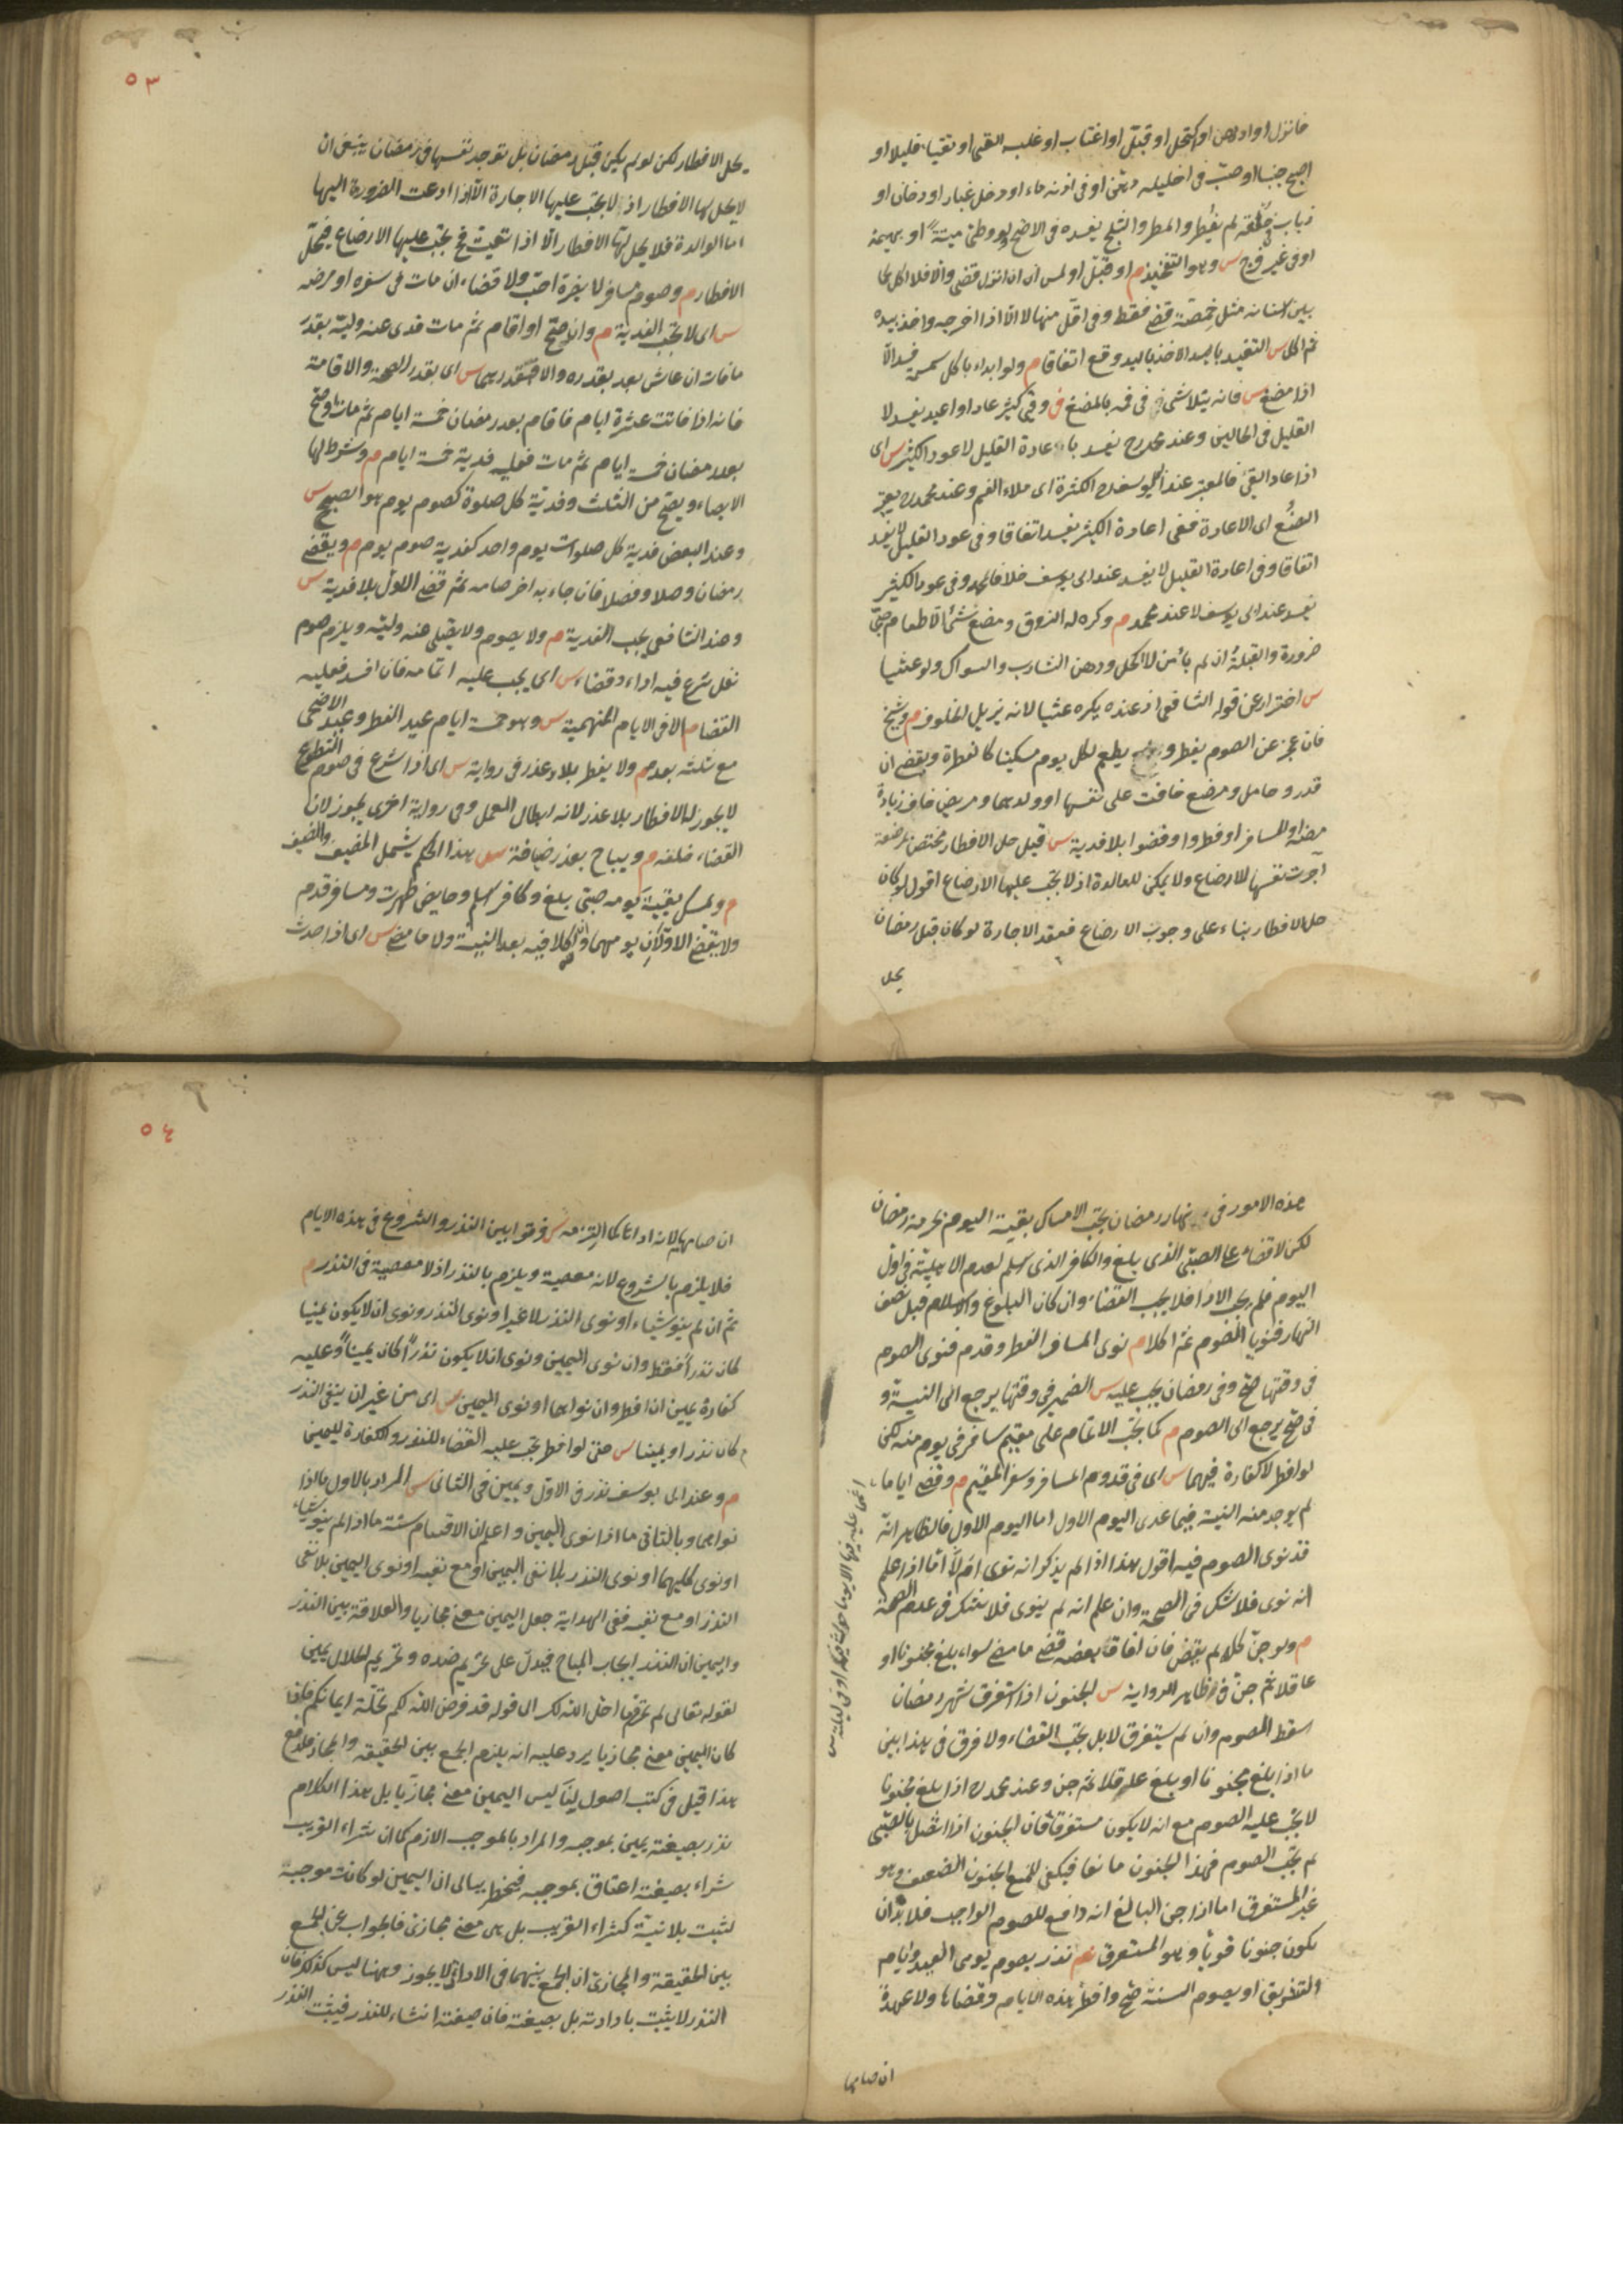 فانزل او ادهن او اكتحل او قبل او اغتاب او غلبه القئ او تقيأ قليلا او
اصبح جنبا او صب فى احليله دهن او فى اذنه ماء او دخل غبار او دخان او
ذباب حلقه لم يفطر والمطر والثلج يفسده فى الاصح ولو وطئ ميتة او بهيمة
او فى غير فرج س وهو التفخيذ م او قبل او لمس ان انزل قضى والا فلا اكل ما
بين اسنانه مثل حمصة قضى فقط وفى اقل منها لا الا اذا اخرجه واخذ بيده
ثم اكل س التقييد باليد الاخذ باليد وقع اتفاقا م ولو ابداء باكل سمسم فسد الا
اذا مضغ س فانه يتلاشى فى فمه بالمضغ م وقئ كثير عاد او اعيد يفسد لا
القليل فى الحالين وعند محمد رح يفسد باعادة القليل لا عود الكثير س اى
اذا عاد القئ فالمعتبر عند ابى يوسف رح الكثرة اى ملاء الفم وعند محمد رح يعتبر
الصنع اى الاعادة ففى اعادة الكثير يفسد اتفاقا وفى عود القليل لا يفسد
اتفاقا وفى اعادة القليل لا يفسد عند ابى يوسف خلافا لمحمد وفى عود الكثير
يفسد عند ابى يوسف لا عند محمد م وكره له الذوق ومضغ شئ الا طعام صبى
ضرورة والقبلة ان لم يأمن لا الكحل ودهن الشارب والسواك ولو عشيا
س احتراز عن قول الشافعى اذ عنده يكره عشيا لانه يزيل الخلوف م وشيخ
فان عجز عن الصوم يفطر ويطعم لكل يوم مسكينا كالفطرة ويقضى ان
قدر وحامل ومرضع خافت على نفسها او ولدهما ومريض خاف زيادة
مرضه والمسافر افطروا وقضوا بلا فدية س قيل حل الافطار مختص بمرضعة
آجرت نفسها للارضاع ولا يمكن للوالدة اذ لا يجب عليها الارضاع اقول لو كان
حل الافطار بناء على وجوب الارضاع فعقد الاجارة لو كان قبل رمضان
يحل
٥٣
يحل الافطار لكن لو لم يكن قبل رمضان بل توجد نفسها فى رمضان ينبغى ان
لا يحل لها الافطار اذ لا يجب عليها الاجارة الا اذا دعت الضرورة اليها
اما الوالدة فلا يحل لها الافطار الا اذا تعينت فح يجب عليها الارضاع فيحل
الافطار م وصوم مسافر لا يضره احب ولا قضاء ان مات فى سفره او مرضه
س اى لا تجب الفدية م وان صح او اقام ثم مات فدى عنه وليه بقدر
ما فات ان عاش بعد بقدره والا فبقدرهما س اى بقدر الصحة والاقامة
فانه اذا فاتت عشرة ايام فاقام بعد رمضان خمسة ايام ثم مات او صح
بعد رمضان خمسة ايام ثم مات فعليه فدية خمسة ايام م وشرط لها
الايصاء ويصح من الثلث وفدية كل صلوة كصوم يوم هو الصحيح س
وعند البعض فدية كل صلوات يوم واحد كفدية صوم يوم م ويقضى
رمضان وصلا وفصلا فان جاء به اخر صامه ثم قضى الاول بلا فدية س
وعند الشافعى يجب الفدية م ولا يصوم ولا يصلى عنه وليه ويلزم صوم
نفل شرع فيه اداء وقضاء س اى يجب عليه اتمامه فان افسد فعليه
القضاء م الا فى الايام المنهية س وهو خمسة ايام عيد الفطر وعيد الاضحى
مع ثلثة بعده م ولا يفطر بلا عذر فى رواية س اى اذا شرع فى صوم التطوع
لا يجوز له الافطار بلا عذر لانه ابطال العمل وفى رواية اخرى يجوز لان
القضاء خلفه م ويباح بعذر ضيافة س هذا الحكم يشمل المضيف والضيف
م ويمسك بقية يومه صبى بلغ وكافر اسلم وحايض طهرت ومسافر قدم
ولا يقضى الاولان يومهما وان اكلا فيه بعد النية ولا ما مضى س اى اذا حدث
هذه الامور فى نهار رمضان يجب الامساك بقية اليوم لحرمة رمضان
لكن لا قضاء على الصبى الذى بلغ والكافر الذى اسلم لعدم الاهلية فى اول
اليوم فلم يجب الاداء فلا يجب القضاء وان كان البلوغ والاسلام قبل نصف
النهار فنويا الصوم ثم اكلا م نوى المسافر الفطر وقدم فنوى الصوم
فى وقتها صح وفى رمضان يجب عليه س الضمير فى وقتها يرجع الى النية و
فى صح يرجع الى الصوم م كما يجب الاتمام على مقيم سافر فى يوم منه لكن
لو افطر لا كفارة فيهما س اى فى قدوم المسافر وسفر المقيم م وقضى اياما
لم يوجد منه النية فيما عدى اليوم الاول اما اليوم الاول فالظاهر انه
قد نوى الصوم فيه اقول هذا اذا لم يذكر انه نوى ام لا اما اذا علم
انه نوى فلا شك فى الصحة وان علم انه لم ينوى فلا شك فى عدم الصحة
م ولو جن كله لم يقض فان افاق بعضه قضى ما مضى سواء بلغ مجنونا او
عاقلا ثم جن فى ظاهر الرواية س الجنون اذا استغرق شهر رمضان
سقط الصوم وان لم يستغرق لا بل يجب القضاء ولا فرق فى هذا بين
ما اذا بلغ مجنونا او بلغ عاقلا ثم جن وعند محمد رح اذا بلغ مجنونا
لا يجب عليه الصوم مع انه لا يكون مستغرقا فان الجنون اذا اتصل بالصبى
لم يجب الصوم فهذا الجنون مانعا فيكفى للمنع الجنون الضعيف وهو
غير المستغرق اما اذا جن البالغ انه دافع للصوم الواجب فلا بد ان
يكون جنونا قويا وهو المستغرق م نذر بصوم يومى العيد وايام
التشريق او بصوم السنة صح وافطر هذه الايام وقضاها ولا عهدة
ان صامها
اغمى عليه فيها الا يوما حدث فيه او فى ليلته س
٥٤
ان صامها لانه اداها كما التزمه س فرقوا بين النذر والشروع فى هذه الايام
فلا يلزم بالشروع لانه معصية ويلزم بالنذر اذ لا معصية فى النذر م
ثم ان لم ينو شيئا او نوى النذر لا غير او نوى النذر ونوى ان لا يكون يمينا
كان نذرا فقط وان نوى اليمين ونوى ان لا يكون نذرا كان يمينا وعليه
كفارة يمين ان افطر وان نواهما او نوى اليمين س اى من غير ان ينفى النذر
م كان نذرا ويمينا س حتى لو افطر يجب عليه القضاء للنذر والكفارة لليمين
م وعند ابى يوسف نذر فى الاول ويمين فى الثانى س المراد بالاول ما اذا
نواهما وبالثانى ما اذا نوى اليمين واعلم ان الاقسام ستة ما اذا لم ينو شيئا
او نوى كليهما او نوى النذر بلا نفى اليمين او مع نفيه او نوى اليمين بلا نفى
النذر او مع نفيه ففى الهداية جعل اليمين معنى مجازيا والعلاقة بين النذر
واليمين ان النذر ايجاب المباح فيدل على تحريم ضده وتحريم الحلال يمين
لقوله تعالى لم تحرم ما احل الله لك الى قوله قد فرض الله لكم تحلة ايمانكم فاذا
كان اليمين معنى مجازيا يرد عليه انه يلزم الجمع بين الحقيقة والمجاز فلدفع
هذا قيل فى كتب اصولنا ليس اليمين معنى مجازيا بل هذا الكلام
نذر بصيغته يمين بموجبه والمراد بالموجب اللازم كما ان شراء القريب
شراء بصيغته اعتاق بموجبه فيخطر ببالى ان اليمين لو كانت موجبة
لثبت بلا نية كشراء القريب بل هى معنى مجازى فالجواب عن الجمع
بين الحقيقة والمجازى ان الجمع بينهما فى الارادة لا يجوز وههنا ليس كذلك فان
النذر لا يثبت بارادته بل بصيغته فان صيغته انشاء للنذر فيثبت النذر